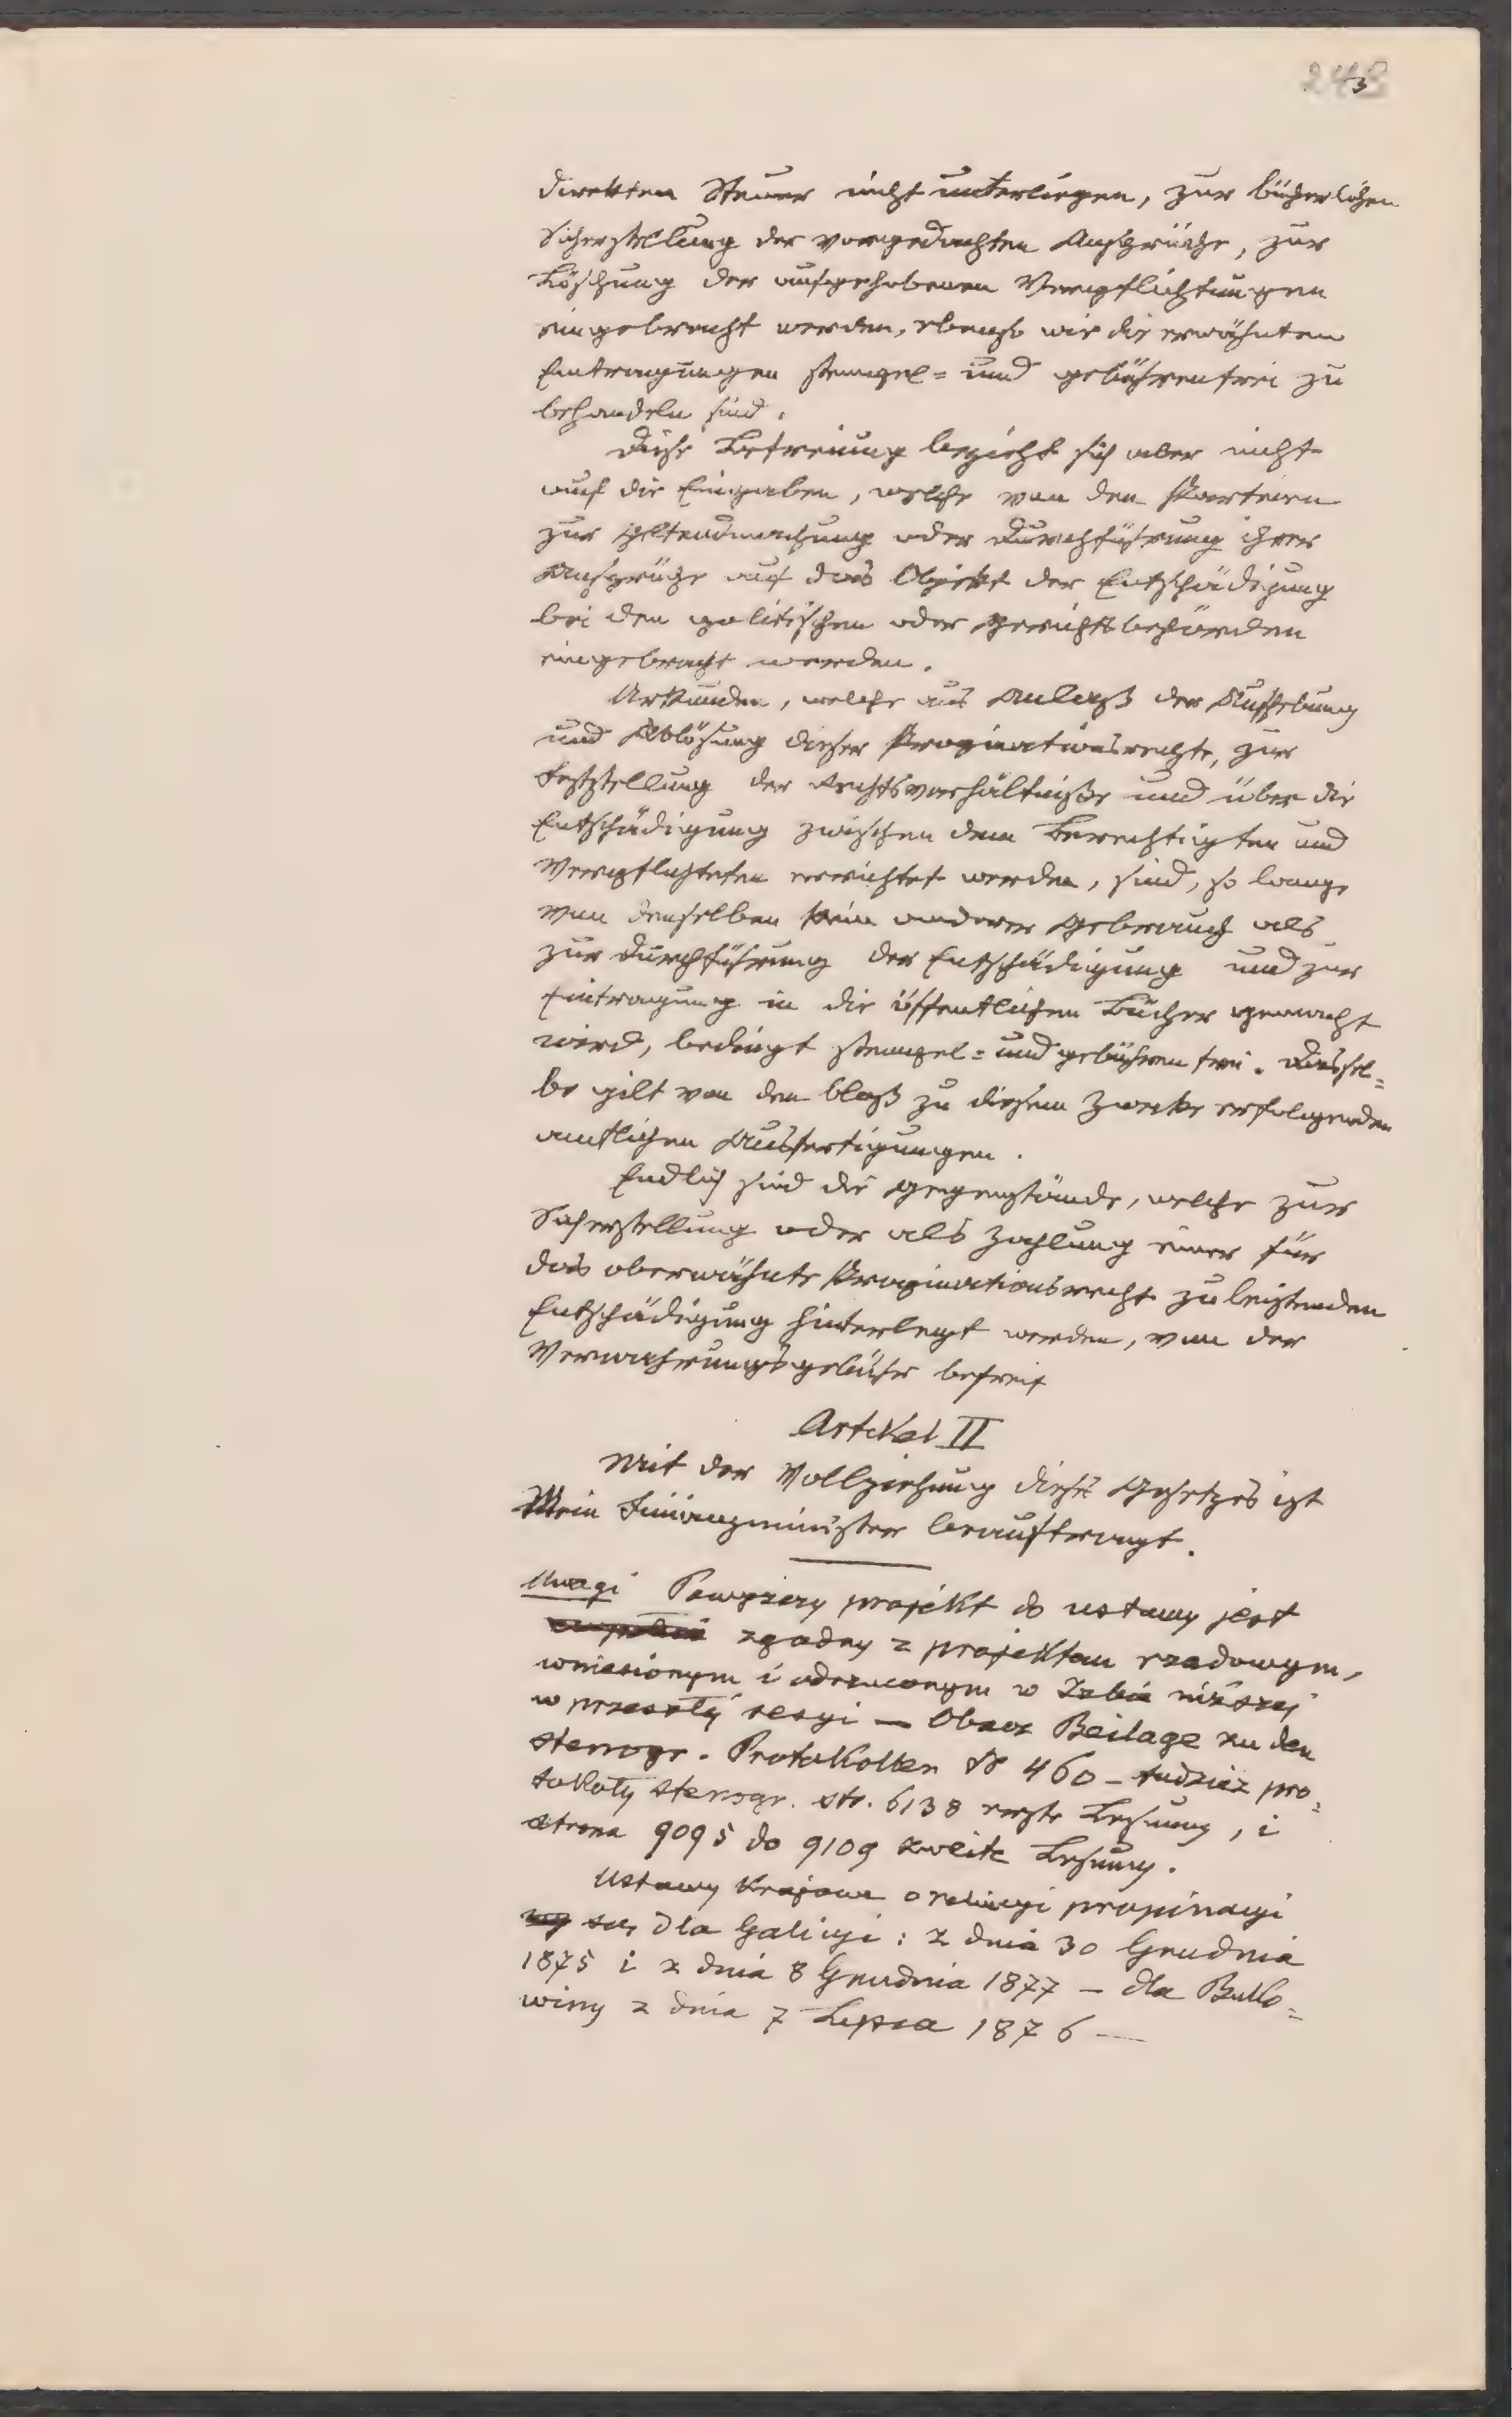 243
direkten Steuer nicht unterliegen, zur bücherlichen
Sicherstellung der vorgedachten Ansprüche, zur
Löschung der aufgehobenen Verpflichtungen
eingebracht werden, ebenso wie die erwähnten
Eintragungen stempel= und gebührenfrei zu
behandeln sind.
Diese Befreiung bezieht sich aber nicht
auf die Eingaben, welche von den Parteien
zur Geltendmachung oder Durchführung ihrer
Ansprüche auf das Objekt der Entschädigung
bei den politischen oder Gerichtsbehörden
eingebracht werden.
Urkunden, welche aus Anlaß der Aufhebung
und Ablösung dieser Propinationsrechte, zur
Feststellung der Rechtsverhältniße und über die
Entschädigung zwischen dem Berechtigten und
Verpflichteten errichtet werden, sind, so lange
von denselben kein anderer Gebrauch als
zur Durchführung der Entschädigung und zur
Eintragung in die öffentlichen Bücher gemacht
wird, bedingt stempel= und gebührenfrei. Dassel=
be gilt von den bloß zu diesem Zwecke erfolgenden
amtlichen Ausfertigungen.
Endlich sind die Gegenstände, welche zur
Sicherstellung oder als Zahlung einer für
das oberwähnte Propinationsrecht zu leistenden
Entschädigung hinterlegt werden, von der
Verwahrungsgebühr befreit
Artikel II
Mit der Vollziehung dieses Gesetzes ist
Mein Finanzminister beauftragt.
Uwagi Powyższy projekt do ustawy jest
zgodny z projektem rządowym,
wniesionym i odrzuconym w Izbie niższej
w przeszłéj sesyi — Obacz Beilage zu den
stenogr. Protokollen № 460 – tudzież pro=
tokoły stenogr. str. 6138 erste Lesung, i
strona 9095 do 9109 zweite Lesung.
Ustawy krajowe o propinacyi
są, dla Galicyi: z dnia 30 Grudnia
1875 i z dnia 8 Grudnia 1877 — dla Buko=
winy z dnia 7 Lipca 1876 —